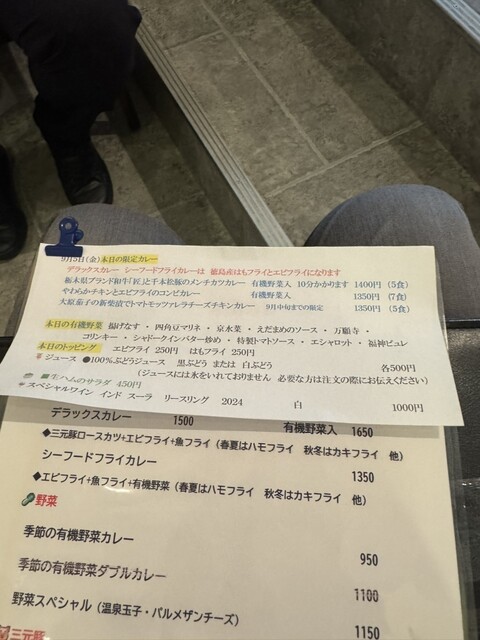 9月5日(金)本日の限定カレー
デラックスカレー シーフードフライカレーは 徳島産はもフライとエビフライになります
栃木県ブランド和牛「匠」と千本松豚のメンチカツカレー 有機野菜入 10分かかります 1400円 (5食)
やわらかチキンとエビフライのコンビカレー 有機野菜入 1350円 (7食)
大原茄子の新柴漬でトマトモッツァレラチーズチキンカレー 9月中旬までの限定 1350円 (5食)
本日の有機野菜 揚げなす・四角豆マリネ・京水菜・えだまめのソース・万願寺・
コリンキー・シャドークインバター炒め・特製トマトソース・エシャロット・福神ピュレ
本日のトッピング エビフライ 250円 はもフライ 250円
ジュース ●100%ぶどうジュース 黒ぶどう または 白ぶどう 各500円
(ジュースには氷をいれておりません 必要な方は注文の際にお伝えください)
生ハムのサラダ 450円
スペシャルワイン インド スーラ リースリング 2024 白 1000円
デラックスカレー 1500 有機野菜入 1650
◆三元豚ロースカツ+エビフライ+魚フライ(春夏はハモフライ 秋冬はカキフライ 他)
シーフードフライカレー 1350
◆エビフライ+魚フライ+有機野菜(春夏はハモフライ 秋冬はカキフライ 他)
野菜
季節の有機野菜カレー 950
季節の有機野菜ダブルカレー 1100
野菜スペシャル(温泉玉子・パルメザンチーズ) 1150
三元豚